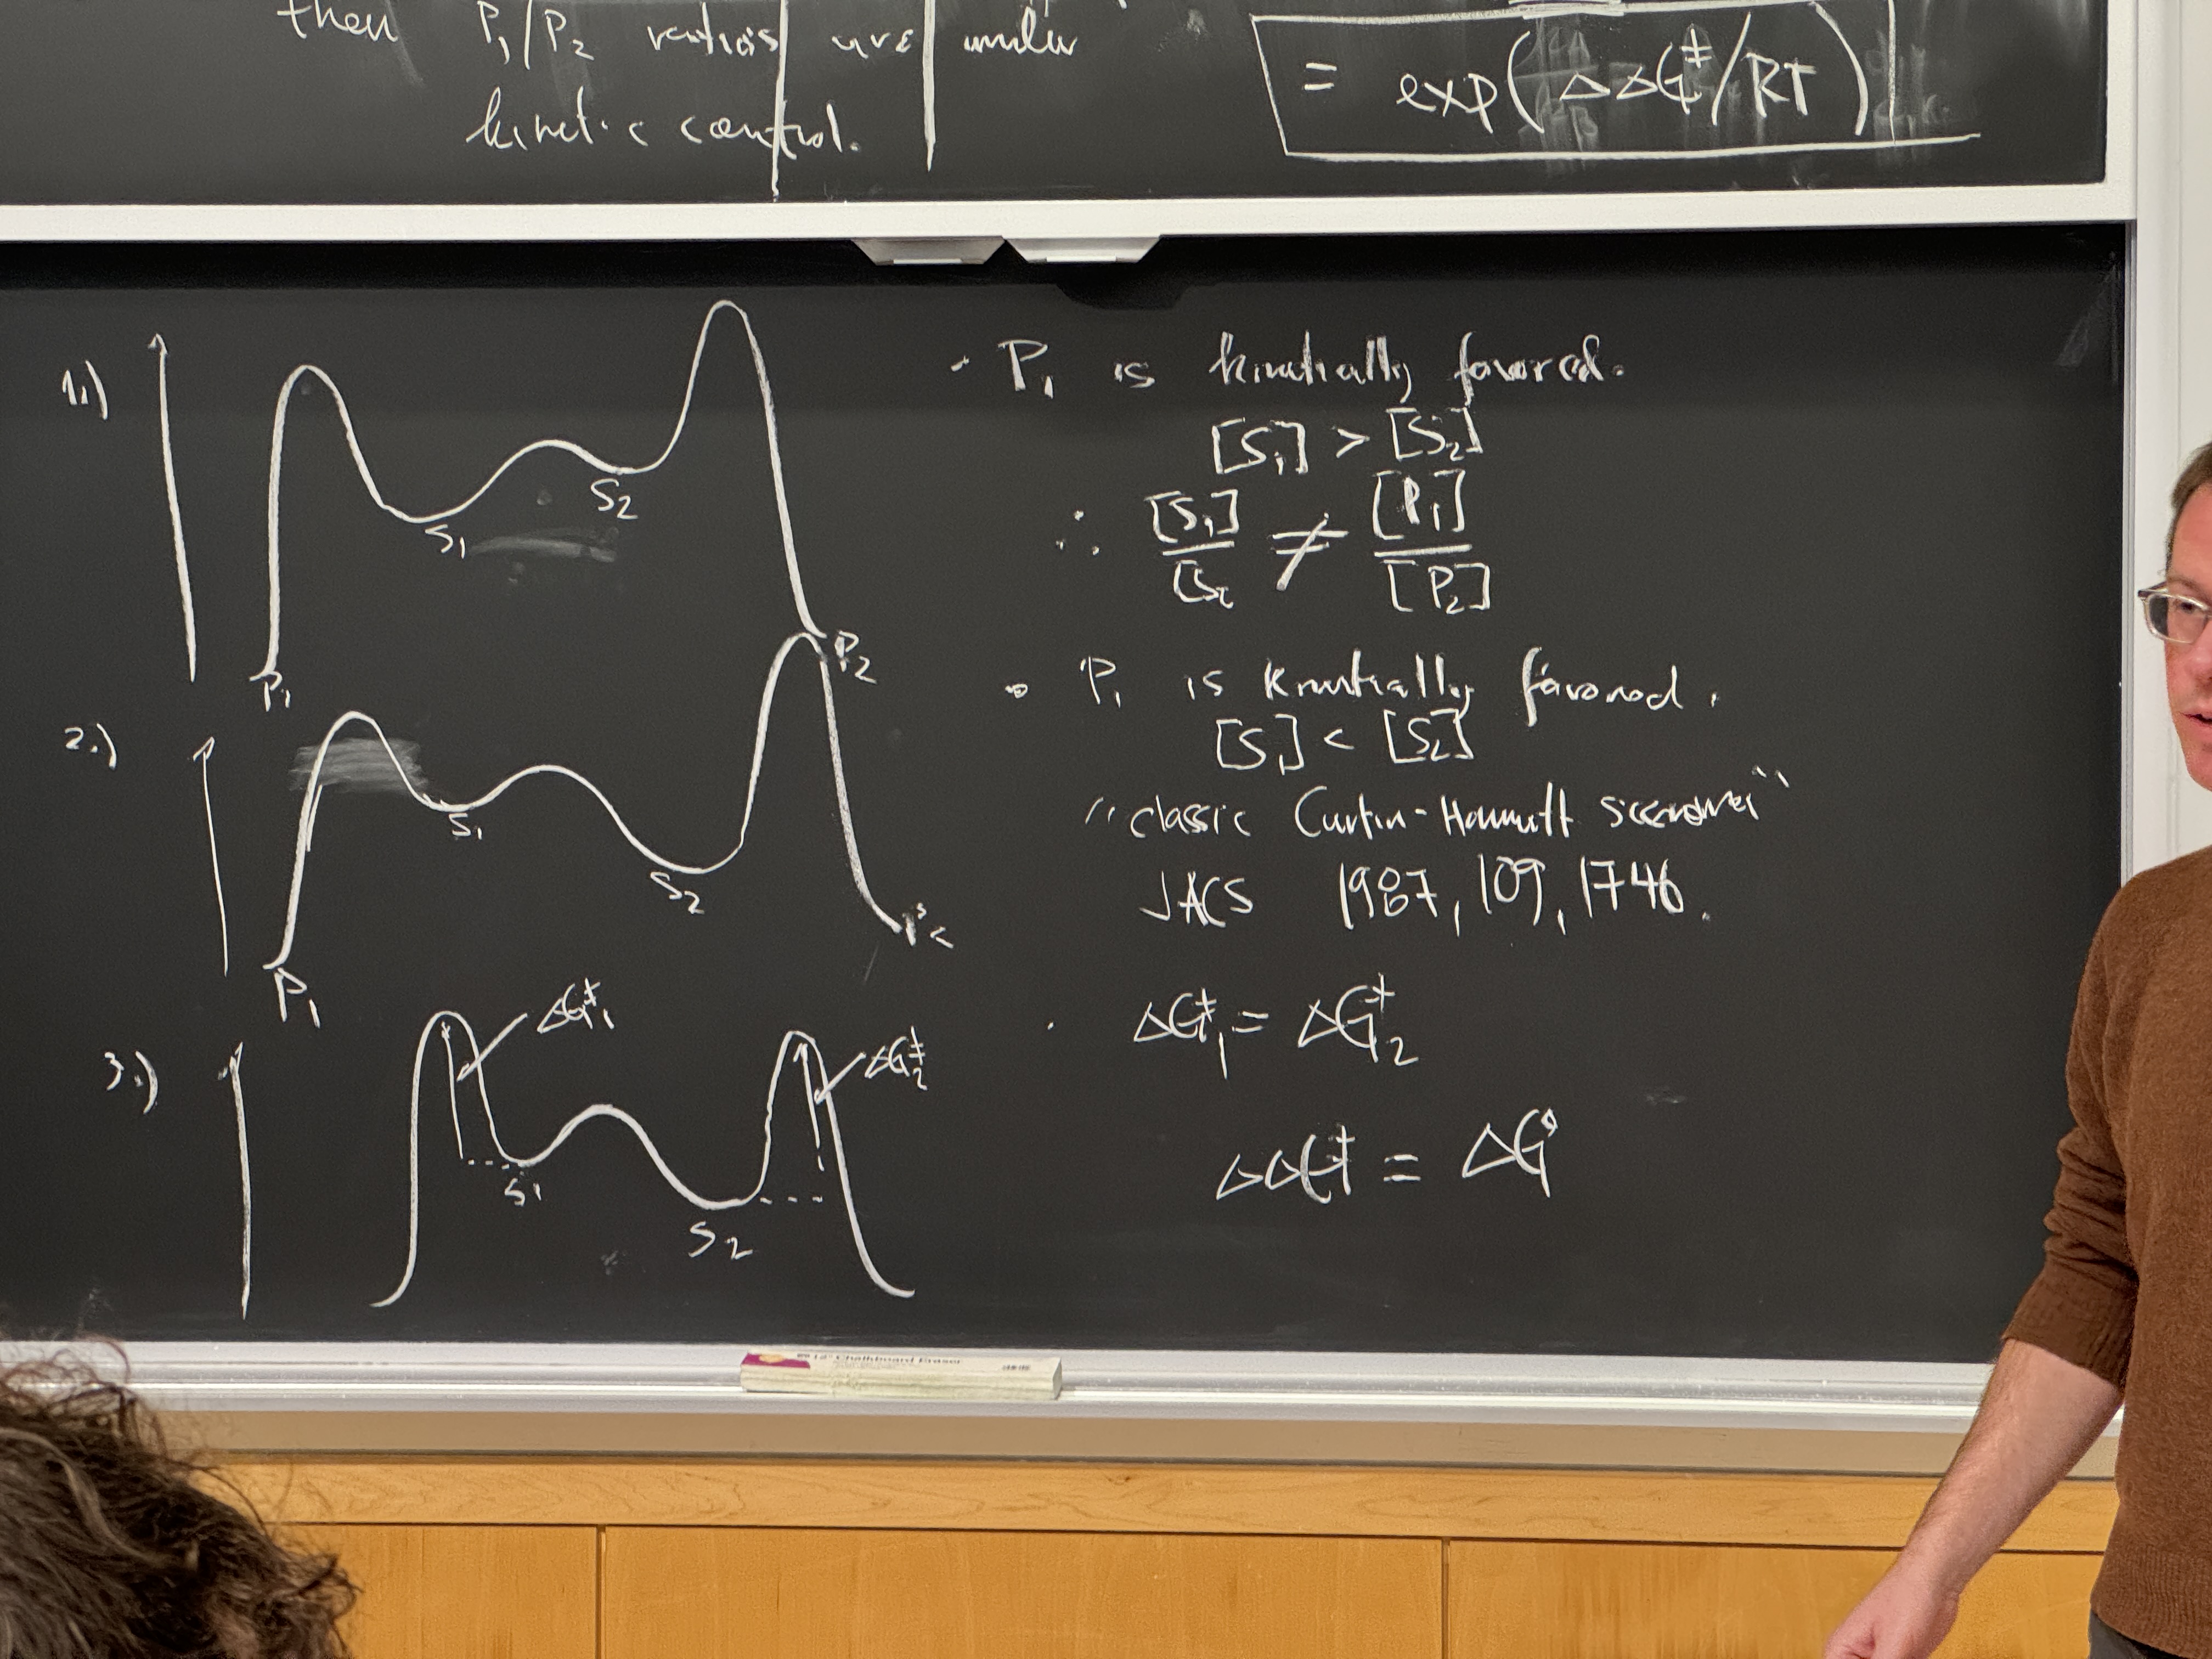 then P₁/P₂ ratios are under
kinetic control.
= exp(ΔΔG‡/RT)
1.)
S₁
S₂
P₁
P₂
· P₁ is kinetically favored.
[S₁] > [S₂]
∴ [S₁]/[S₂ ≠ [P₁]/[P₂]
2.)
S₁
S₂
P₁
P₂
· P₁ is kinetically favored.
[S₁] < [S₂]
"classic Curtin-Hammett scenario"
JACS 1987, 109, 1746.
3.)
ΔG‡₁
ΔG‡₂
S₁
S₂
· ΔG‡₁ = ΔG‡₂
ΔΔG‡ = ΔG°
Chalkboard Eraser